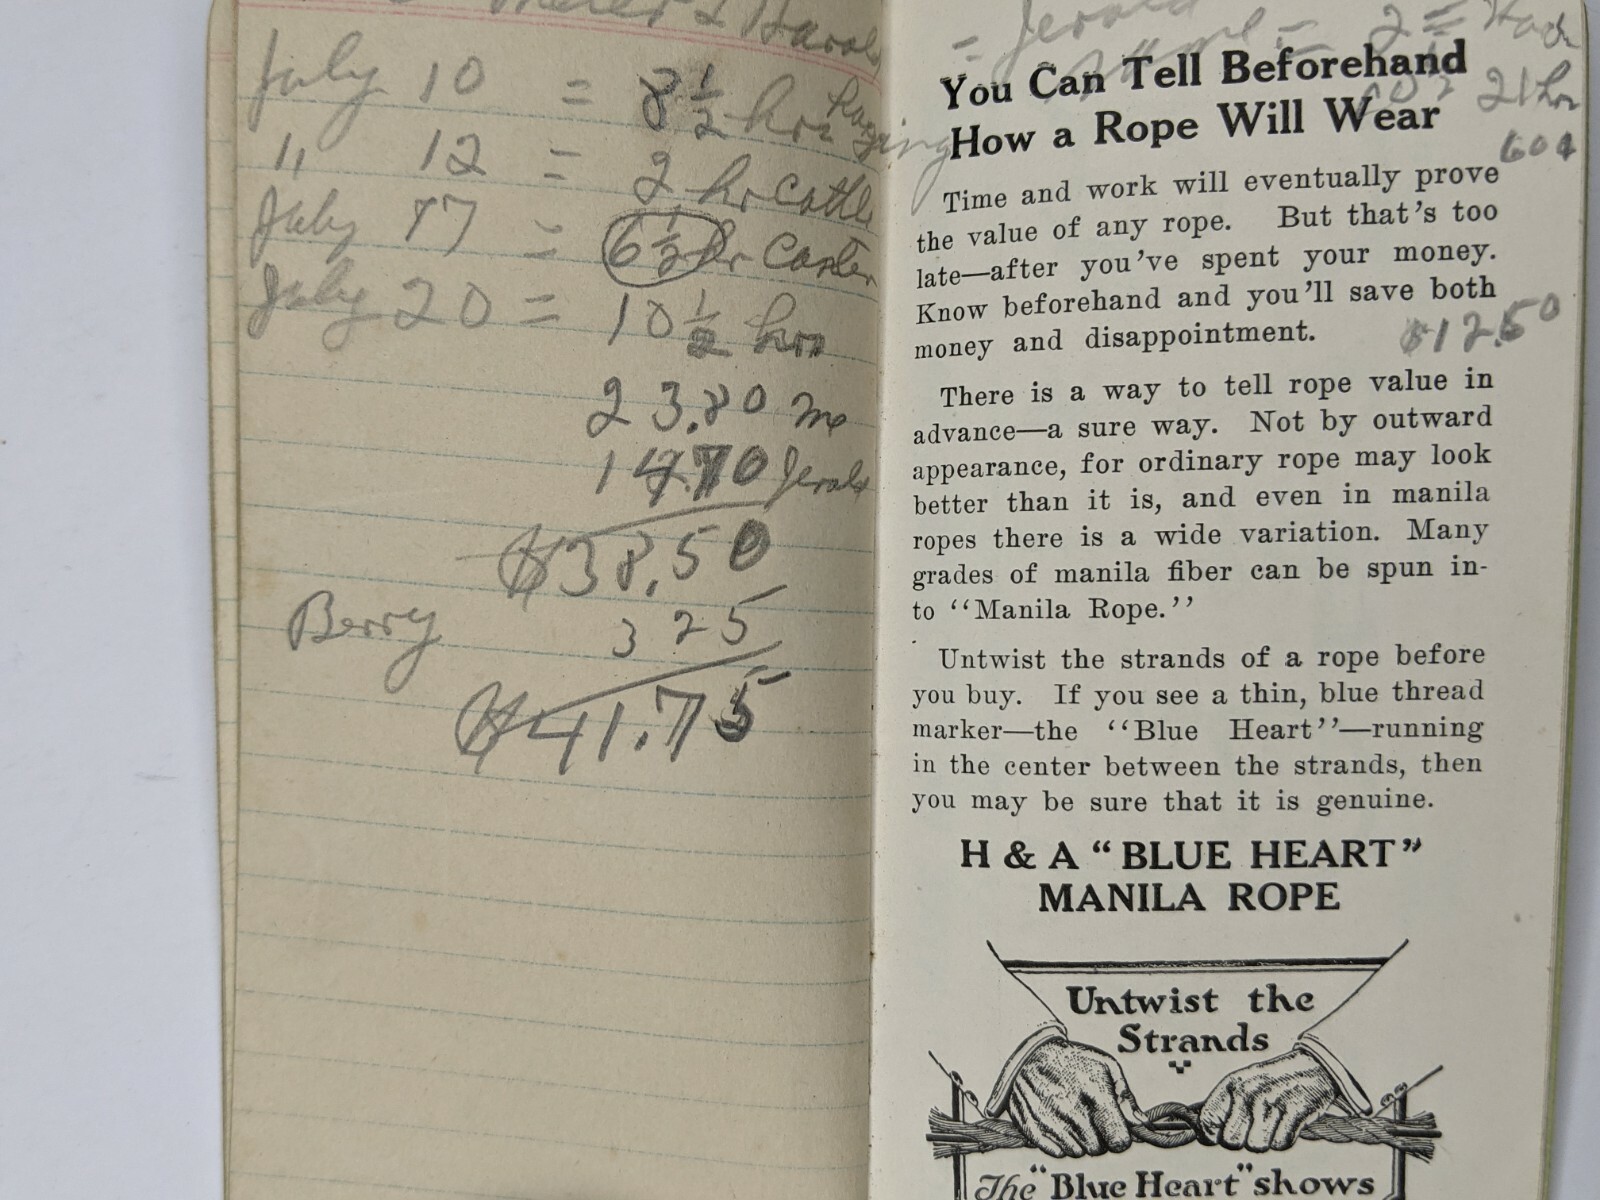 July 10 = 8 1/2 hrs
" 12 = 2 hr Cattle
July 17 = 6 1/2 hr
July 20 = 10 1/2 hrs
23.80 me
14.70 Jerald
$38.50
Berry 3 25
$41.75
= Jerald
= 2
21 hr
60¢
You Can Tell Beforehand
How a Rope Will Wear
Time and work will eventually prove
the value of any rope. But that's too
late—after you've spent your money.
Know beforehand and you'll save both
money and disappointment.
$12.60
There is a way to tell rope value in
advance—a sure way. Not by outward
appearance, for ordinary rope may look
better than it is, and even in manila
ropes there is a wide variation. Many
grades of manila fiber can be spun in-
to ‘‘Manila Rope.’’
Untwist the strands of a rope before
you buy. If you see a thin, blue thread
marker—the ‘‘Blue Heart’’—running
in the center between the strands, then
you may be sure that it is genuine.
H & A “BLUE HEART”
MANILA ROPE
Untwist the
Strands
The "Blue Heart" shows